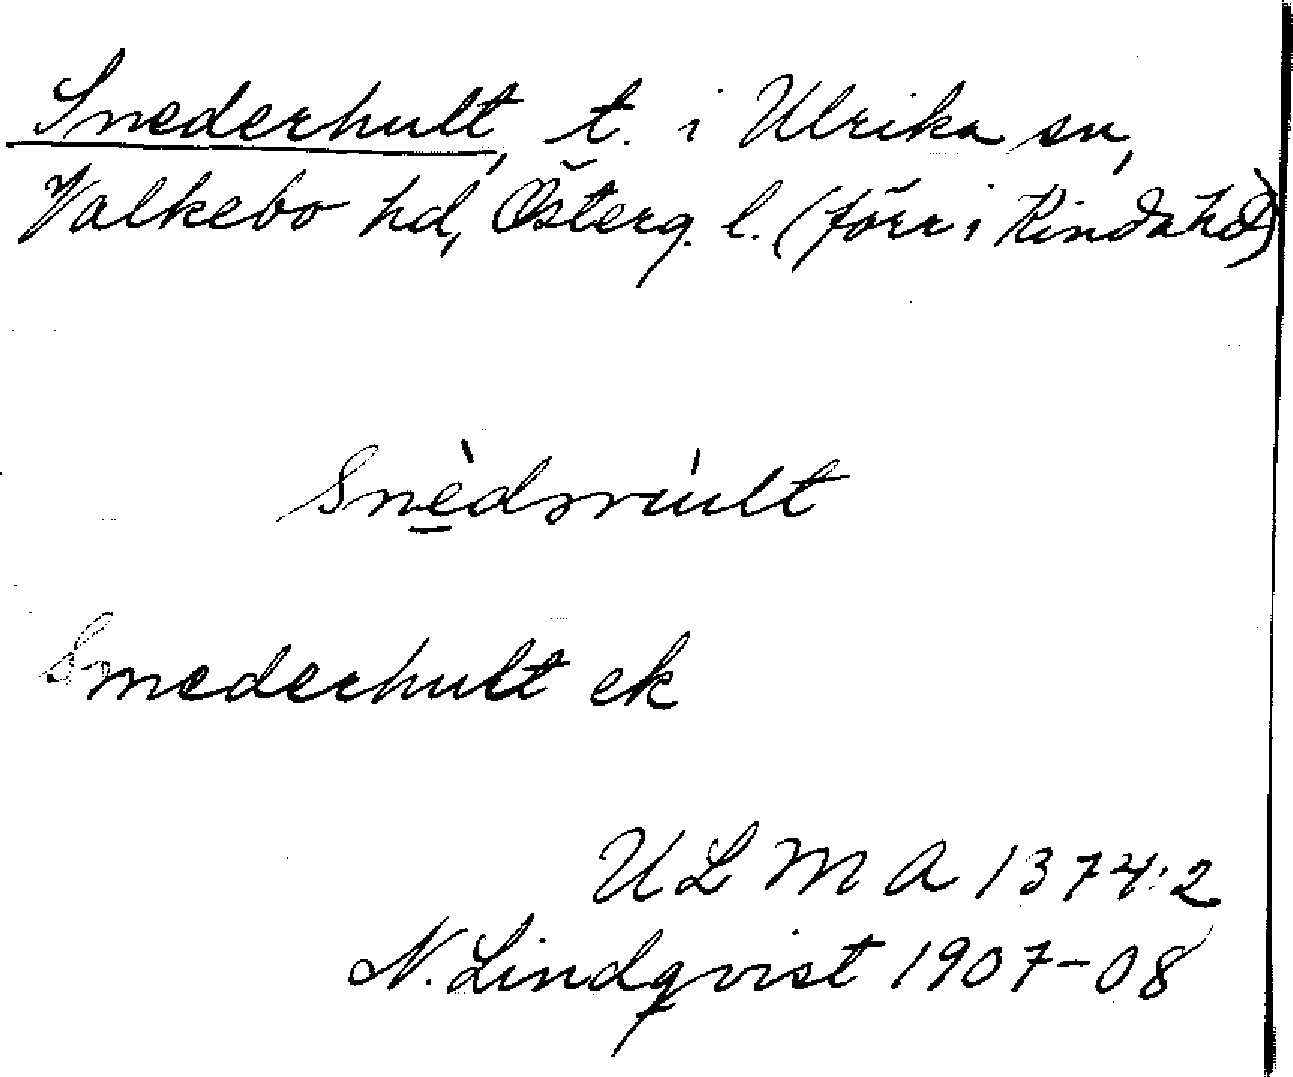 Snederhult, t. i Ulrika sn,
Valkebo hd, Österg. l. (förr i Kinda hd)
Smederhult ek
ULMA 1374:2
N. Lindqvist 1907-08